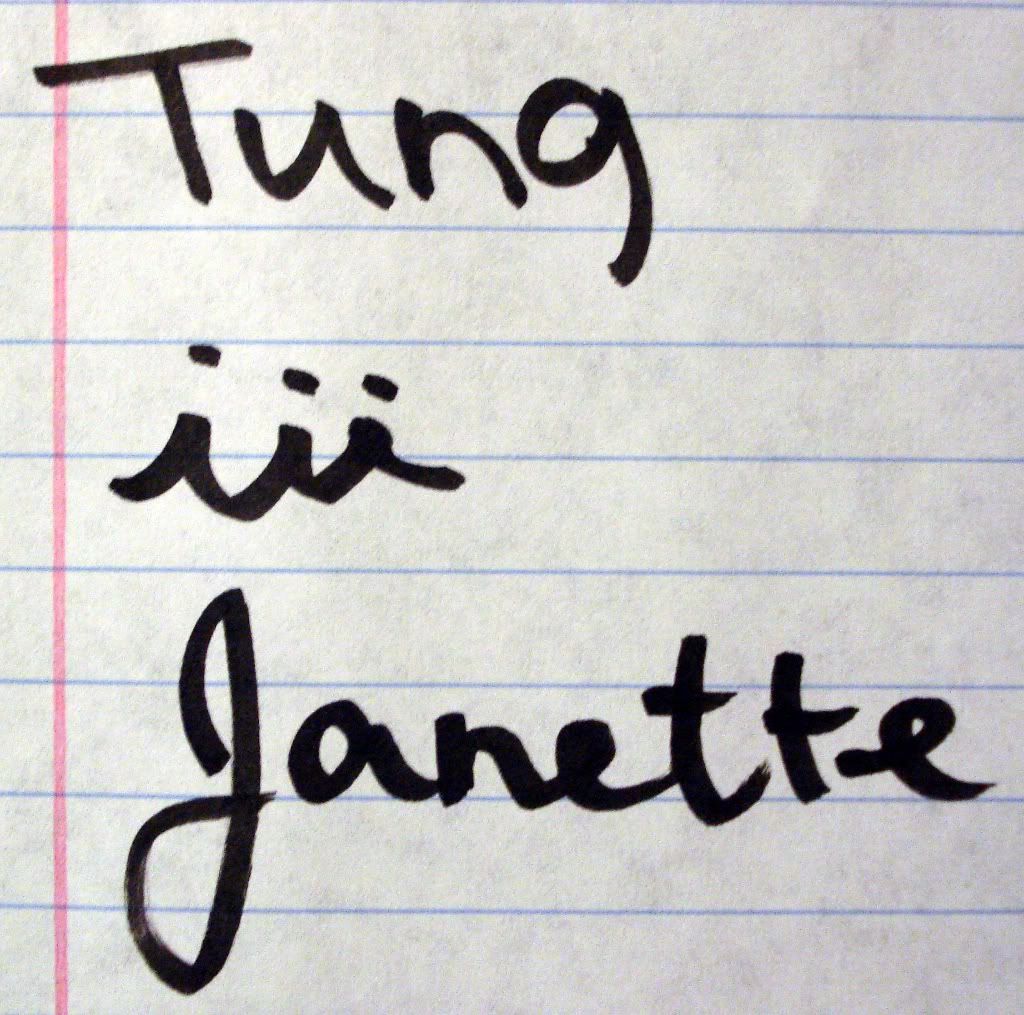 Tung
iii
Janette